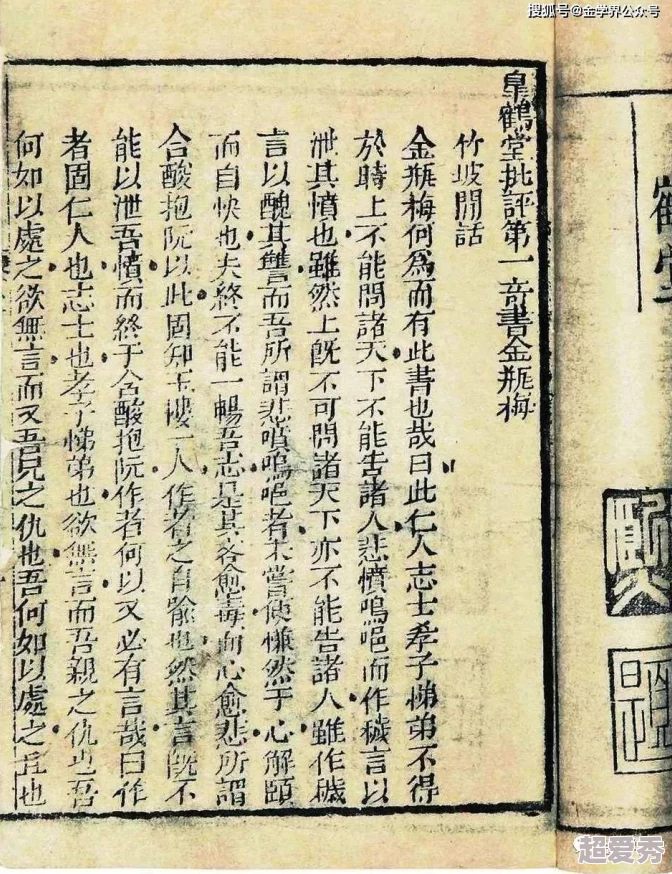 搜狐号@金学界公众号
皐鶴堂批評第一奇書金瓶梅
竹坡閒話
金瓶梅何爲而有此書也哉曰此仁人志士孝子悌弟不得
於時上不能問諸天下不能告諸人悲憤嗚唈而作穢言以
泄其憤也雖然上旣不可問諸天下亦不能告諸人雖作穢
言以醜其讐而吾所謂悲憤嗚唈者未嘗便慊然于心解頤
而自快也夫終不能一暢吾志是其言愈毒而心愈悲所謂
含酸抱阮以此固知玉樓一人作者之自喻也然其言旣不
能以泄吾憤而終于含酸抱阮作者何以又必有言哉曰作
者固仁人也志士也孝子悌弟也欲無言而吾親之仇也吾
何如以處之欲無言而又吾兄之仇也吾何如以處之且也
超爱秀